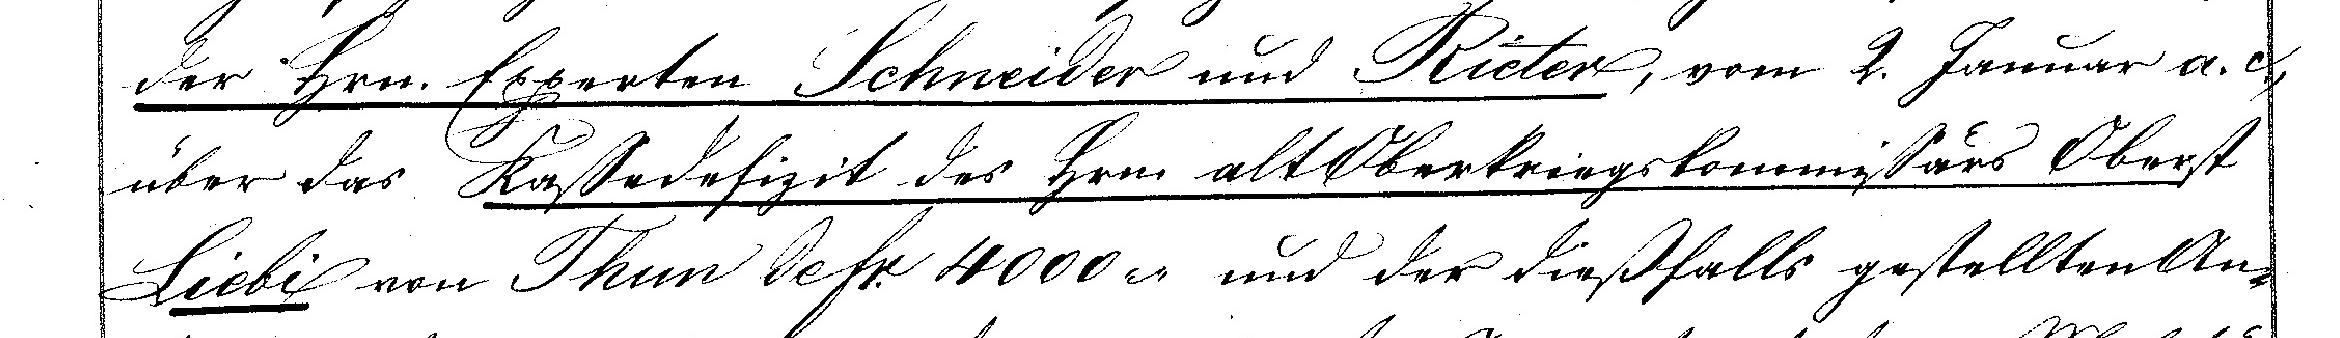 der Hrn. Experten Schneider und Rieter, vom 2. Januar a. c.,
über das Kassedefizit des Hrn. alt Oberkriegskommissärs Oberst
Liebi von Thun de fr. 4000.- und der dießfalls gestellten An-